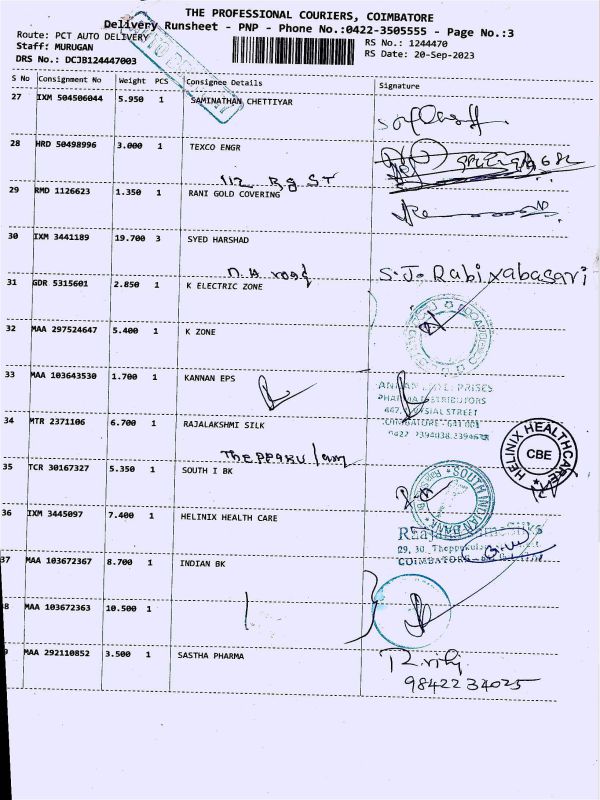 THE PROFESSIONAL COURIERS, COIMBATORE
Delivery Runsheet - PNP - Phone No.:0422-3505555 - Page No.:3
Route: PCT AUTO DELIVERY
RS No.: 1244470
Staff: MURUGAN
RS Date: 20-Sep-2023
DRS No.: DCJB124447003
AUTO DELIVERY
S No Consignment No Weight PCS Consignee Details Signature
27 IXM 504506044 5.950 1 SAMINATHAN CHETTIYAR
28 HRD 50498996 3.000 1 TEXCO ENGR
112 Rg ST
29 RMD 1126623 1.350 1 RANI GOLD COVERING
30 IXM 3441189 19.700 3 SYED HARSHAD
N.H road S.J. Rabiyabasari
31 GDR 5315601 2.850 1 K ELECTRIC ZONE
32 MAA 297524647 5.400 1 K ZONE
33 MAA 103643530 1.700 1 KANNAN EPS
PHARMA DISTRIBUTORS
COIMBATORE - 641 001
34 MTR 2371106 6.700 1 RAJALAKSHMI SILK
Theppakulam
HELINIX HEALTHCARE
CBE
35 TCR 30167327 5.350 1 SOUTH I BK
SOUTH INDIAN BANK
36 IXM 3445097 7.400 1 HELINIX HEALTH CARE
29, 30, Theppakulam
COIMBATORE
37 MAA 103672367 8.700 1 INDIAN BK
38 MAA 103672363 10.500 1
9 MAA 292110852 3.500 1 SASTHA PHARMA
98422 34025